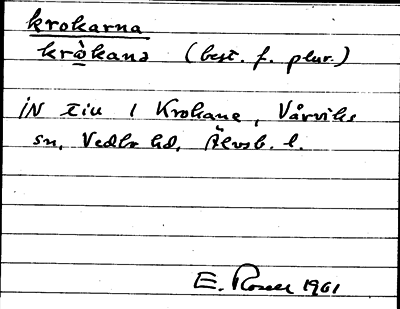 krokarna
krò̱kanə (best. f. plur.)
IN till Krokane, Vårviks
sn, Vedbo hd, Älvsb. l.
E. 1961